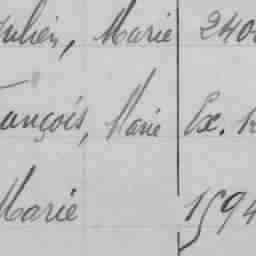 Julien, Marie 240
François, Marie Ex.
Marie 1594